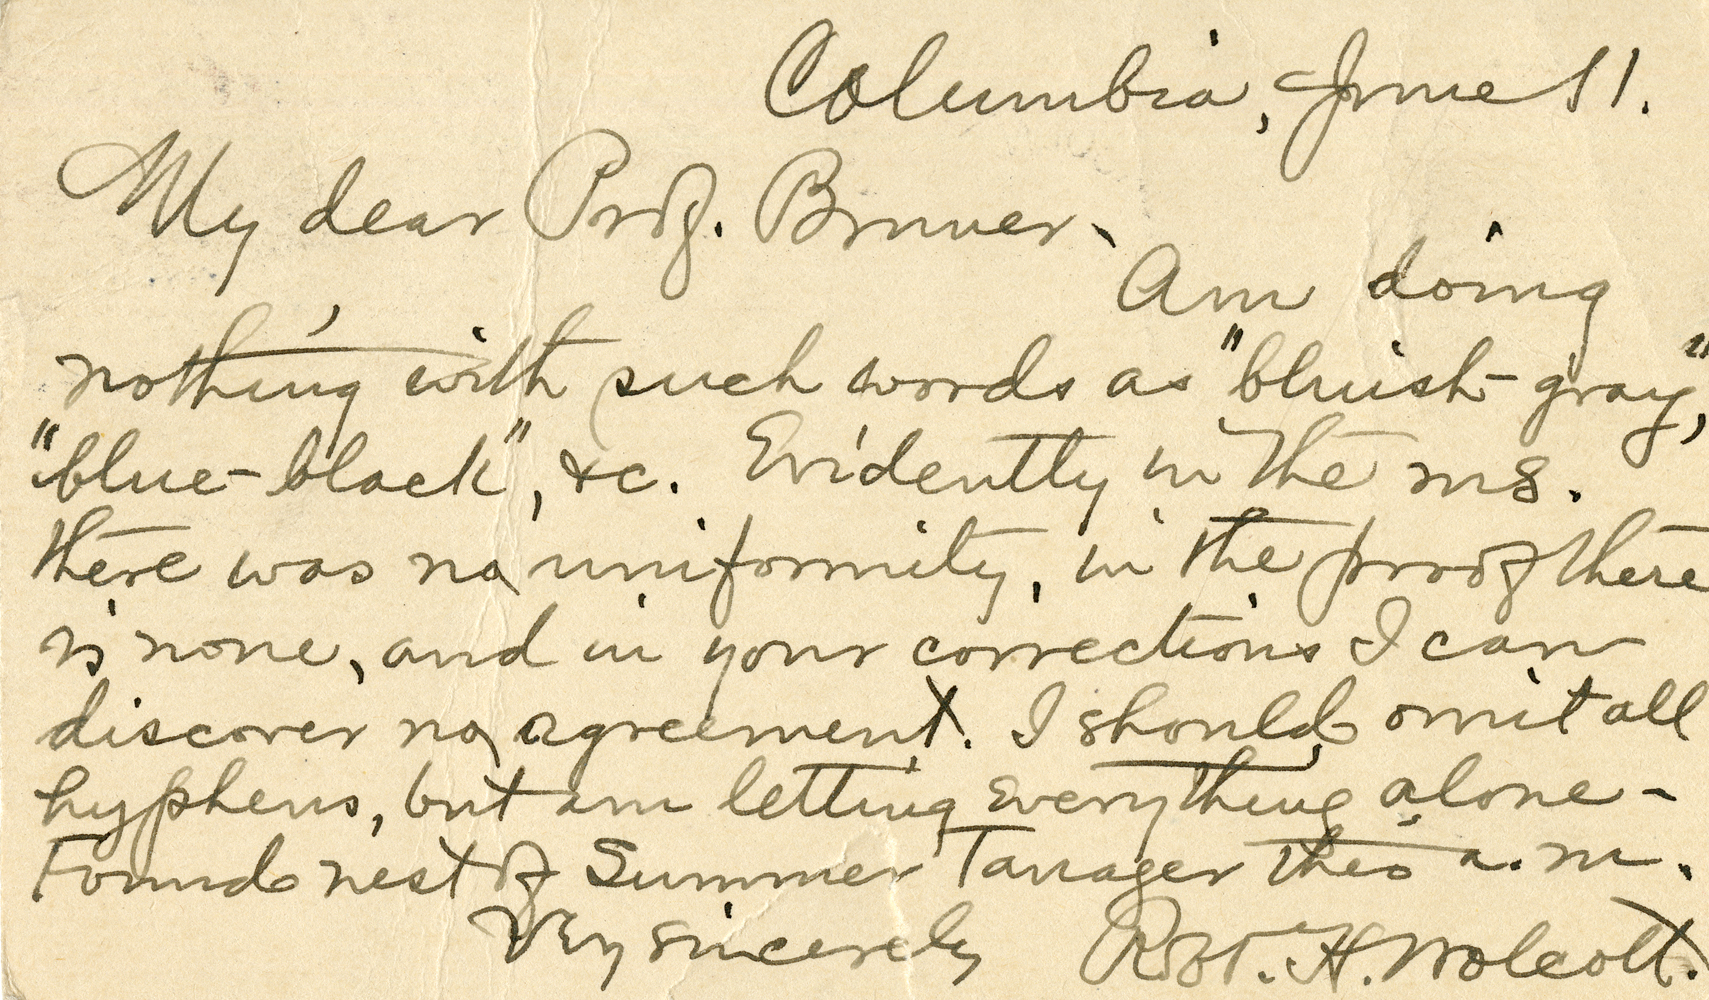 Columbia, June 11.
My dear Prof. Bruner.
Am doing
nothing with such words as "bluish-gray",
"blue-black", &c. Evidently in the ms.
there was no uniformity, in the proof there
is none, and in your corrections I can
discover no agreement. I should omit all
hyphens, but am letting everything alone-
Found nest of Summer Tanager this a.m.
Very sincerely Robt. H. Wolcott.